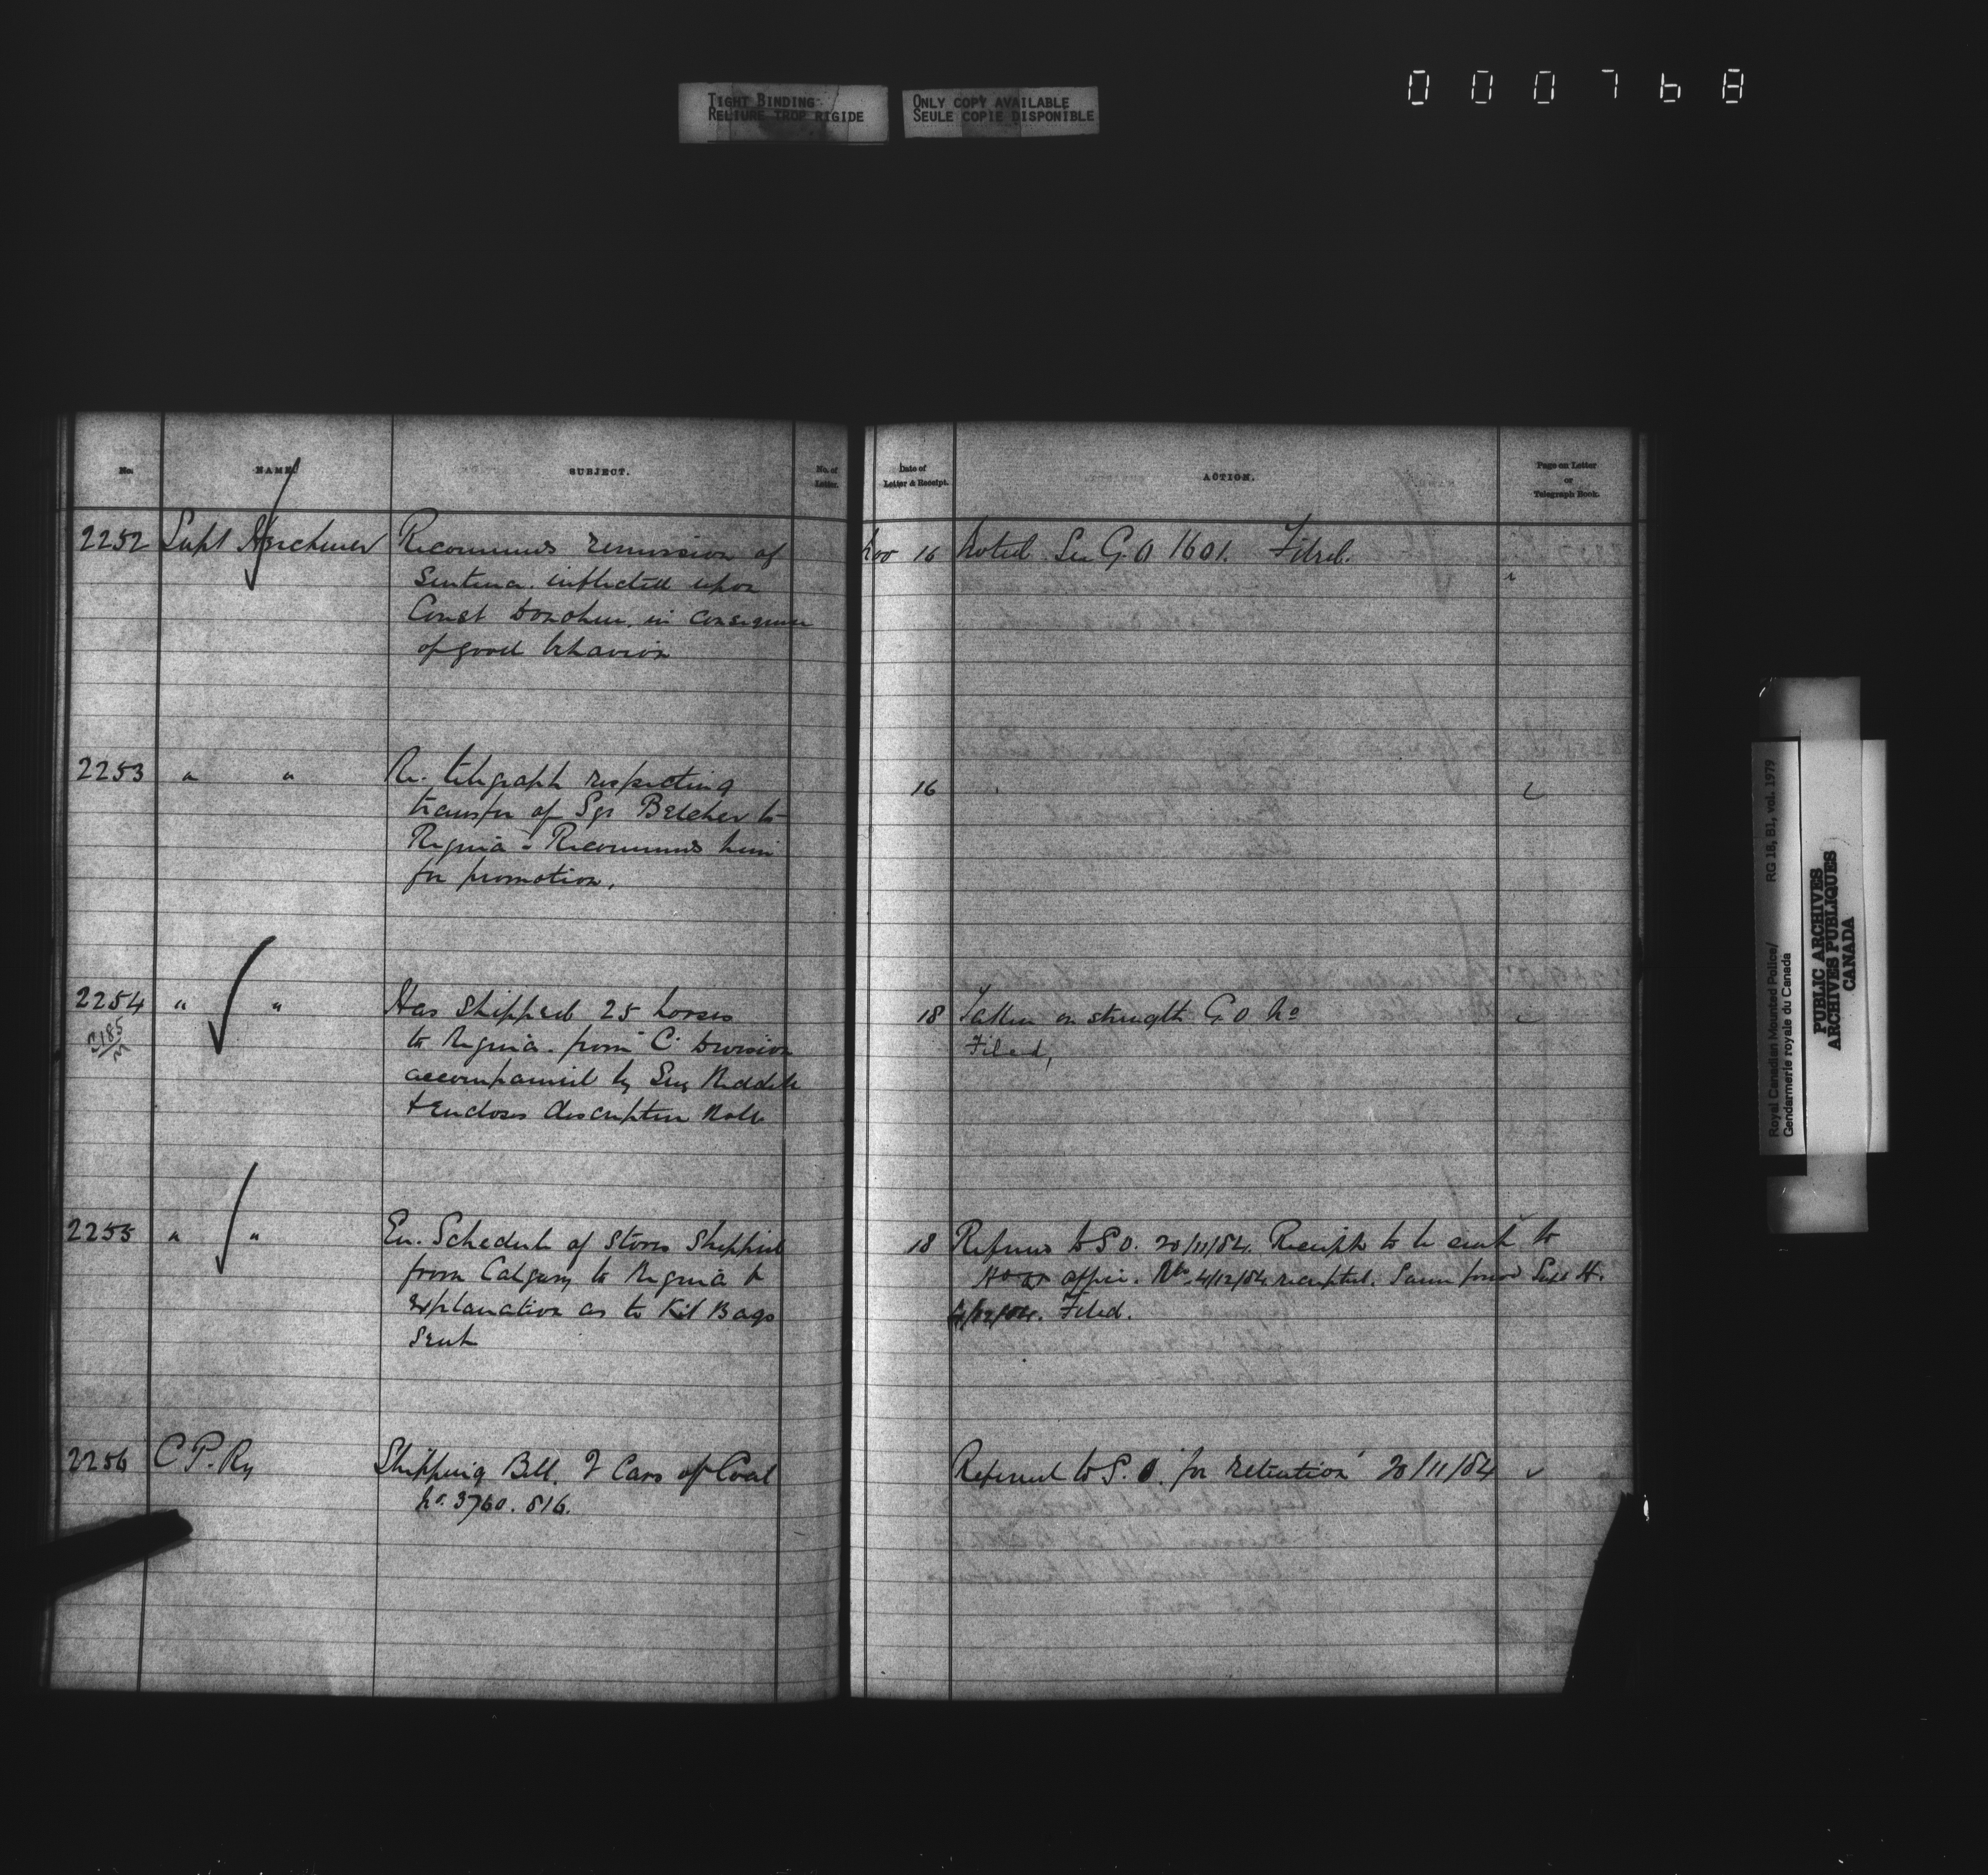 000768
TIGHT BINDING
RELIURE TROP RIGIDE
ONLY COPY AVAILABLE
SEULE COPIE DISPONIBLE
No. NAME. SUBJECT. No. of Letter. Date of Letter & Receipt. ACTION. Page on Letter or Telegraph Book.
2252 Supt Herchmer Recommends remission of Nov 16 Noted See G.O 1601. Filed.
Sentence inflicted upon
Const Donohue in consequence
of good behavior
2253 " " Re. telegraph respecting 16
transfer of Sgt Belcher to
Regina & Recommends him
for promotion.
2254 " " Has shipped 25 horses 18 Taken on strength G O No
3185/M to Regina from "C" Division Filed,
accompanied by
& Encloses description Roll
2255 " " En. Schedule of Stores Shipped 18 Refered to S O. 20/11/84. Receipts to be sent to
from Calgary to Regina &
explanation as to Kit Bags
Sent
office. 4/12/84 receipted. Same forwd Supt H.
4/12/84. Filed.
2256 C P. Ry Shipping Bill. 2 Cars of Coal Referred to S. O. "for retention" 20/11/84
No. 3760. 816.
Royal Canadian Mounted Police/ RG 18, B1, vol. 1979
Gendarmerie royale du Canada
PUBLIC ARCHIVES
ARCHIVES PUBLIQUES
CANADA